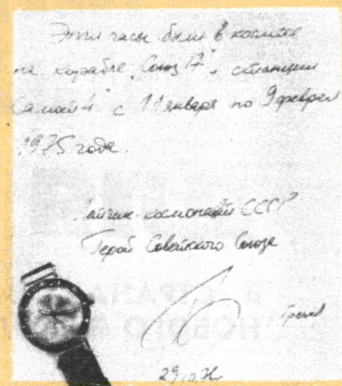 Эти часы были в космосе
на корабле "Союз 17" и станции
"Салют 4" с 11 января по 9 февраля
1975 года.
Летчик-космонавт СССР
Герой Советского Союза
Гречко